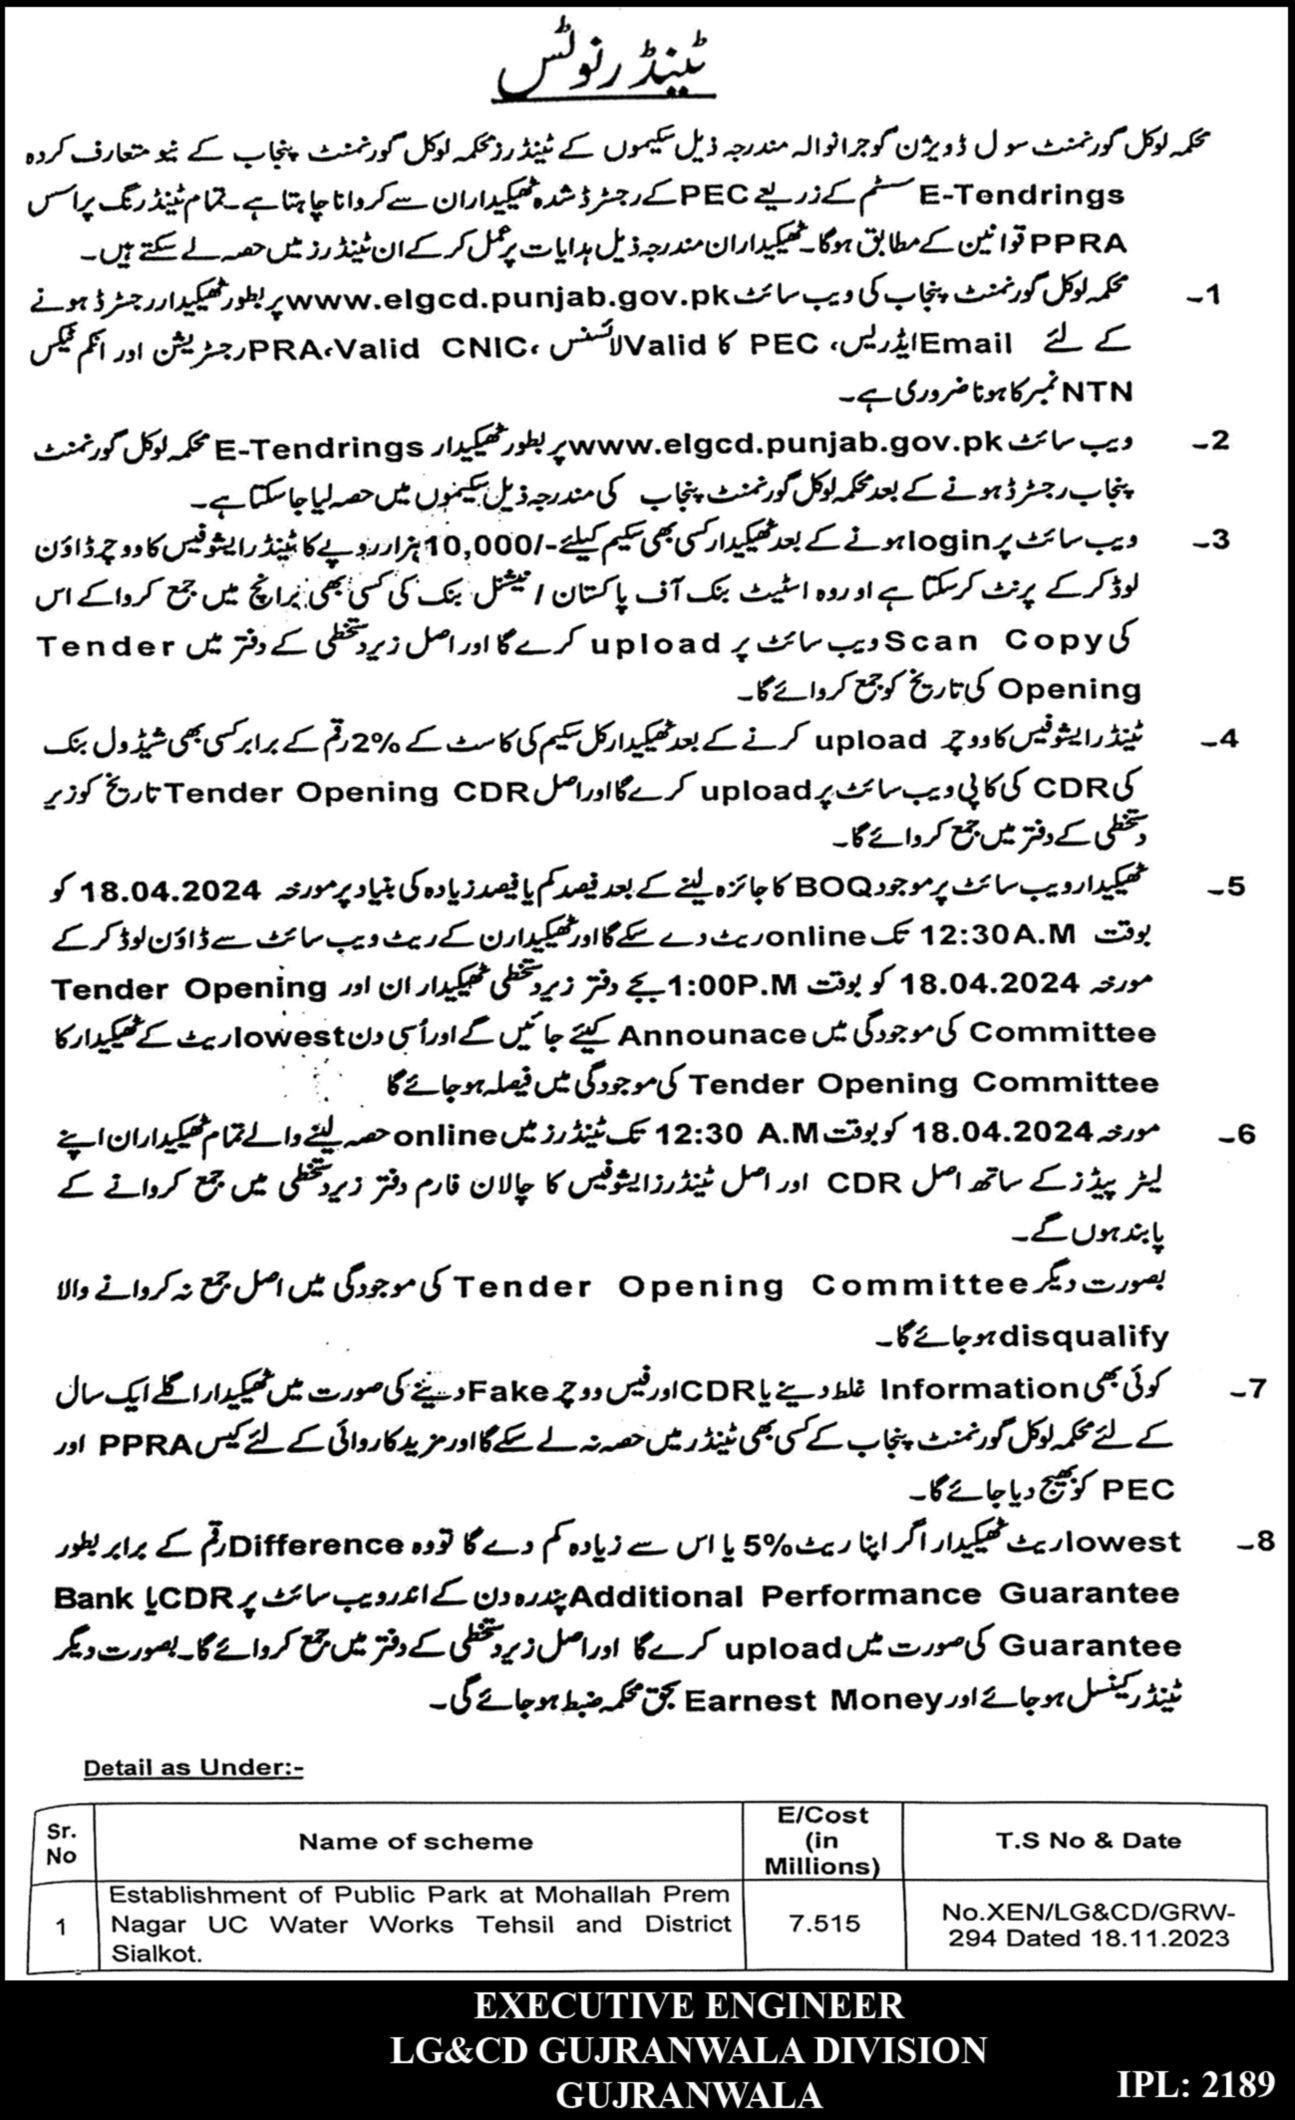 ٹینڈر نوٹس
محکمہ لوکل گورنمنٹ سول ڈویژن گوجرانوالہ مندرجہ ذیل سکیموں کے ٹینڈرز محکمہ لوکل گورنمنٹ پنجاب کے نیو متعارف کردہ
E-Tendrings سسٹم کے ذریعے PEC کے رجسٹرڈ شدہ ٹھیکیداران سے کروانا چاہتا ہے۔ تمام ٹینڈرنگ پراسس
PPRA قوانین کے مطابق ہوگا۔ ٹھیکیداران مندرجہ ذیل ہدایات پر عمل کر کے ان ٹینڈرز میں حصہ لے سکتے ہیں۔
1۔ محکمہ لوکل گورنمنٹ پنجاب کی ویب سائٹ www.elgcd.punjab.gov.pk پر بطور ٹھیکیدار رجسٹرڈ ہونے
کے لئے Email ایڈریس، PEC کا Valid لائسنس، PRA، Valid CNIC رجسٹریشن اور انکم ٹیکس
NTN نمبر کا ہونا ضروری ہے۔
2۔ ویب سائٹ www.elgcd.punjab.gov.pk پر بطور ٹھیکیدار E-Tendrings محکمہ لوکل گورنمنٹ
پنجاب رجسٹرڈ ہونے کے بعد محکمہ لوکل گورنمنٹ پنجاب کی مندرجہ ذیل سکیموں میں حصہ لیا جا سکتا ہے۔
3۔ ویب سائٹ پر login ہونے کے بعد ٹھیکیدار کسی بھی سکیم کیلئے -/10,000 ہزار روپے کا ٹینڈر ایشو فیس کا ووچر ڈاؤن
لوڈ کر کے پرنٹ کر سکتا ہے اور وہ اسٹیٹ بنک آف پاکستان / نیشنل بنک کی کسی بھی برانچ میں جمع کروا کے اس
کی Scan Copy ویب سائٹ پر upload کرے گا اور اصل زیر دستخطی کے دفتر میں Tender
Opening کی تاریخ کو جمع کروائے گا۔
4۔ ٹینڈر ایشو فیس کا ووچر upload کرنے کے بعد ٹھیکیدار کل سکیم کی کاسٹ کے 2% رقم کے برابر کسی بھی شیڈول بنک
کی CDR کی کاپی ویب سائٹ پر upload کرے گا اور اصل Tender Opening CDR تاریخ کو زیر
دستخطی کے دفتر میں جمع کروائے گا۔
5۔ ٹھیکیدار ویب سائٹ پر موجود BOQ کا جائزہ لینے کے بعد فیصد کم یا فیصد زیادہ کی بنیاد پر مورخہ 18.04.2024 کو
بوقت 12:30A.M تک online ریٹ دے سکے گا اور ٹھیکیدارن کے ریٹ ویب سائٹ سے ڈاؤن لوڈ کر کے
مورخہ 18.04.2024 کو بوقت 1:00P.M بجے دفتر زیر دستخطی ٹھیکیداران اور Tender Opening
Committee کی موجودگی میں Announace کیئے جائیں گے اور اُسی دن lowest ریٹ کے ٹھیکیدار کا
Tender Opening Committee کی موجودگی میں فیصلہ ہو جائے گا
6۔ مورخہ 18.04.2024 کو بوقت 12:30 A.M تک ٹینڈرز میں online حصہ لینے والے تمام ٹھیکیداران اپنے
لیٹر پیڈز کے ساتھ اصل CDR اور اصل ٹینڈرز ایشو فیس کا چالان فارم دفتر زیر دستخطی میں جمع کروانے کے
پابند ہوں گے۔
بصورت دیگر Tender Opening Committee کی موجودگی میں اصل جمع نہ کروانے والا
disqualify ہو جائے گا۔
7۔ کوئی بھی Information غلط دینے یا CDR اور فیس ووچر Fake دینے کی صورت میں ٹھیکیدار اگلے ایک سال
کے لئے محکمہ لوکل گورنمنٹ پنجاب کے کسی بھی ٹینڈر میں حصہ نہ لے سکے گا اور مزید کاروائی کے لئے کیس PPRA اور
PEC کو بھیج دیا جائے گا۔
8۔ lowest ریٹ ٹھیکیدار اگر اپنا ریٹ 5% یا اس سے زیادہ کم دے گا تو وہ Difference رقم کے برابر بطور
Additional Performance Guarantee پندرہ دن کے اندر ویب سائٹ پر CDR یا Bank
Guarantee کی صورت میں upload کرے گا اور اصل زیر دستخطی کے دفتر میں جمع کروائے گا۔ بصورت دیگر
ٹینڈر کینسل ہو جائے اور Earnest Money بحق محکمہ ضبط ہو جائے گی۔
Detail as Under:-
Sr. No
Name of scheme
E/Cost
(in
Millions)
T.S No & Date
1
Establishment of Public Park at Mohallah Prem
Nagar UC Water Works Tehsil and District
Sialkot.
7.515
No.XEN/LG&CD/GRW-
294 Dated 18.11.2023
EXECUTIVE ENGINEER
LG&CD GUJRANWALA DIVISION
GUJRANWALA
IPL: 2189